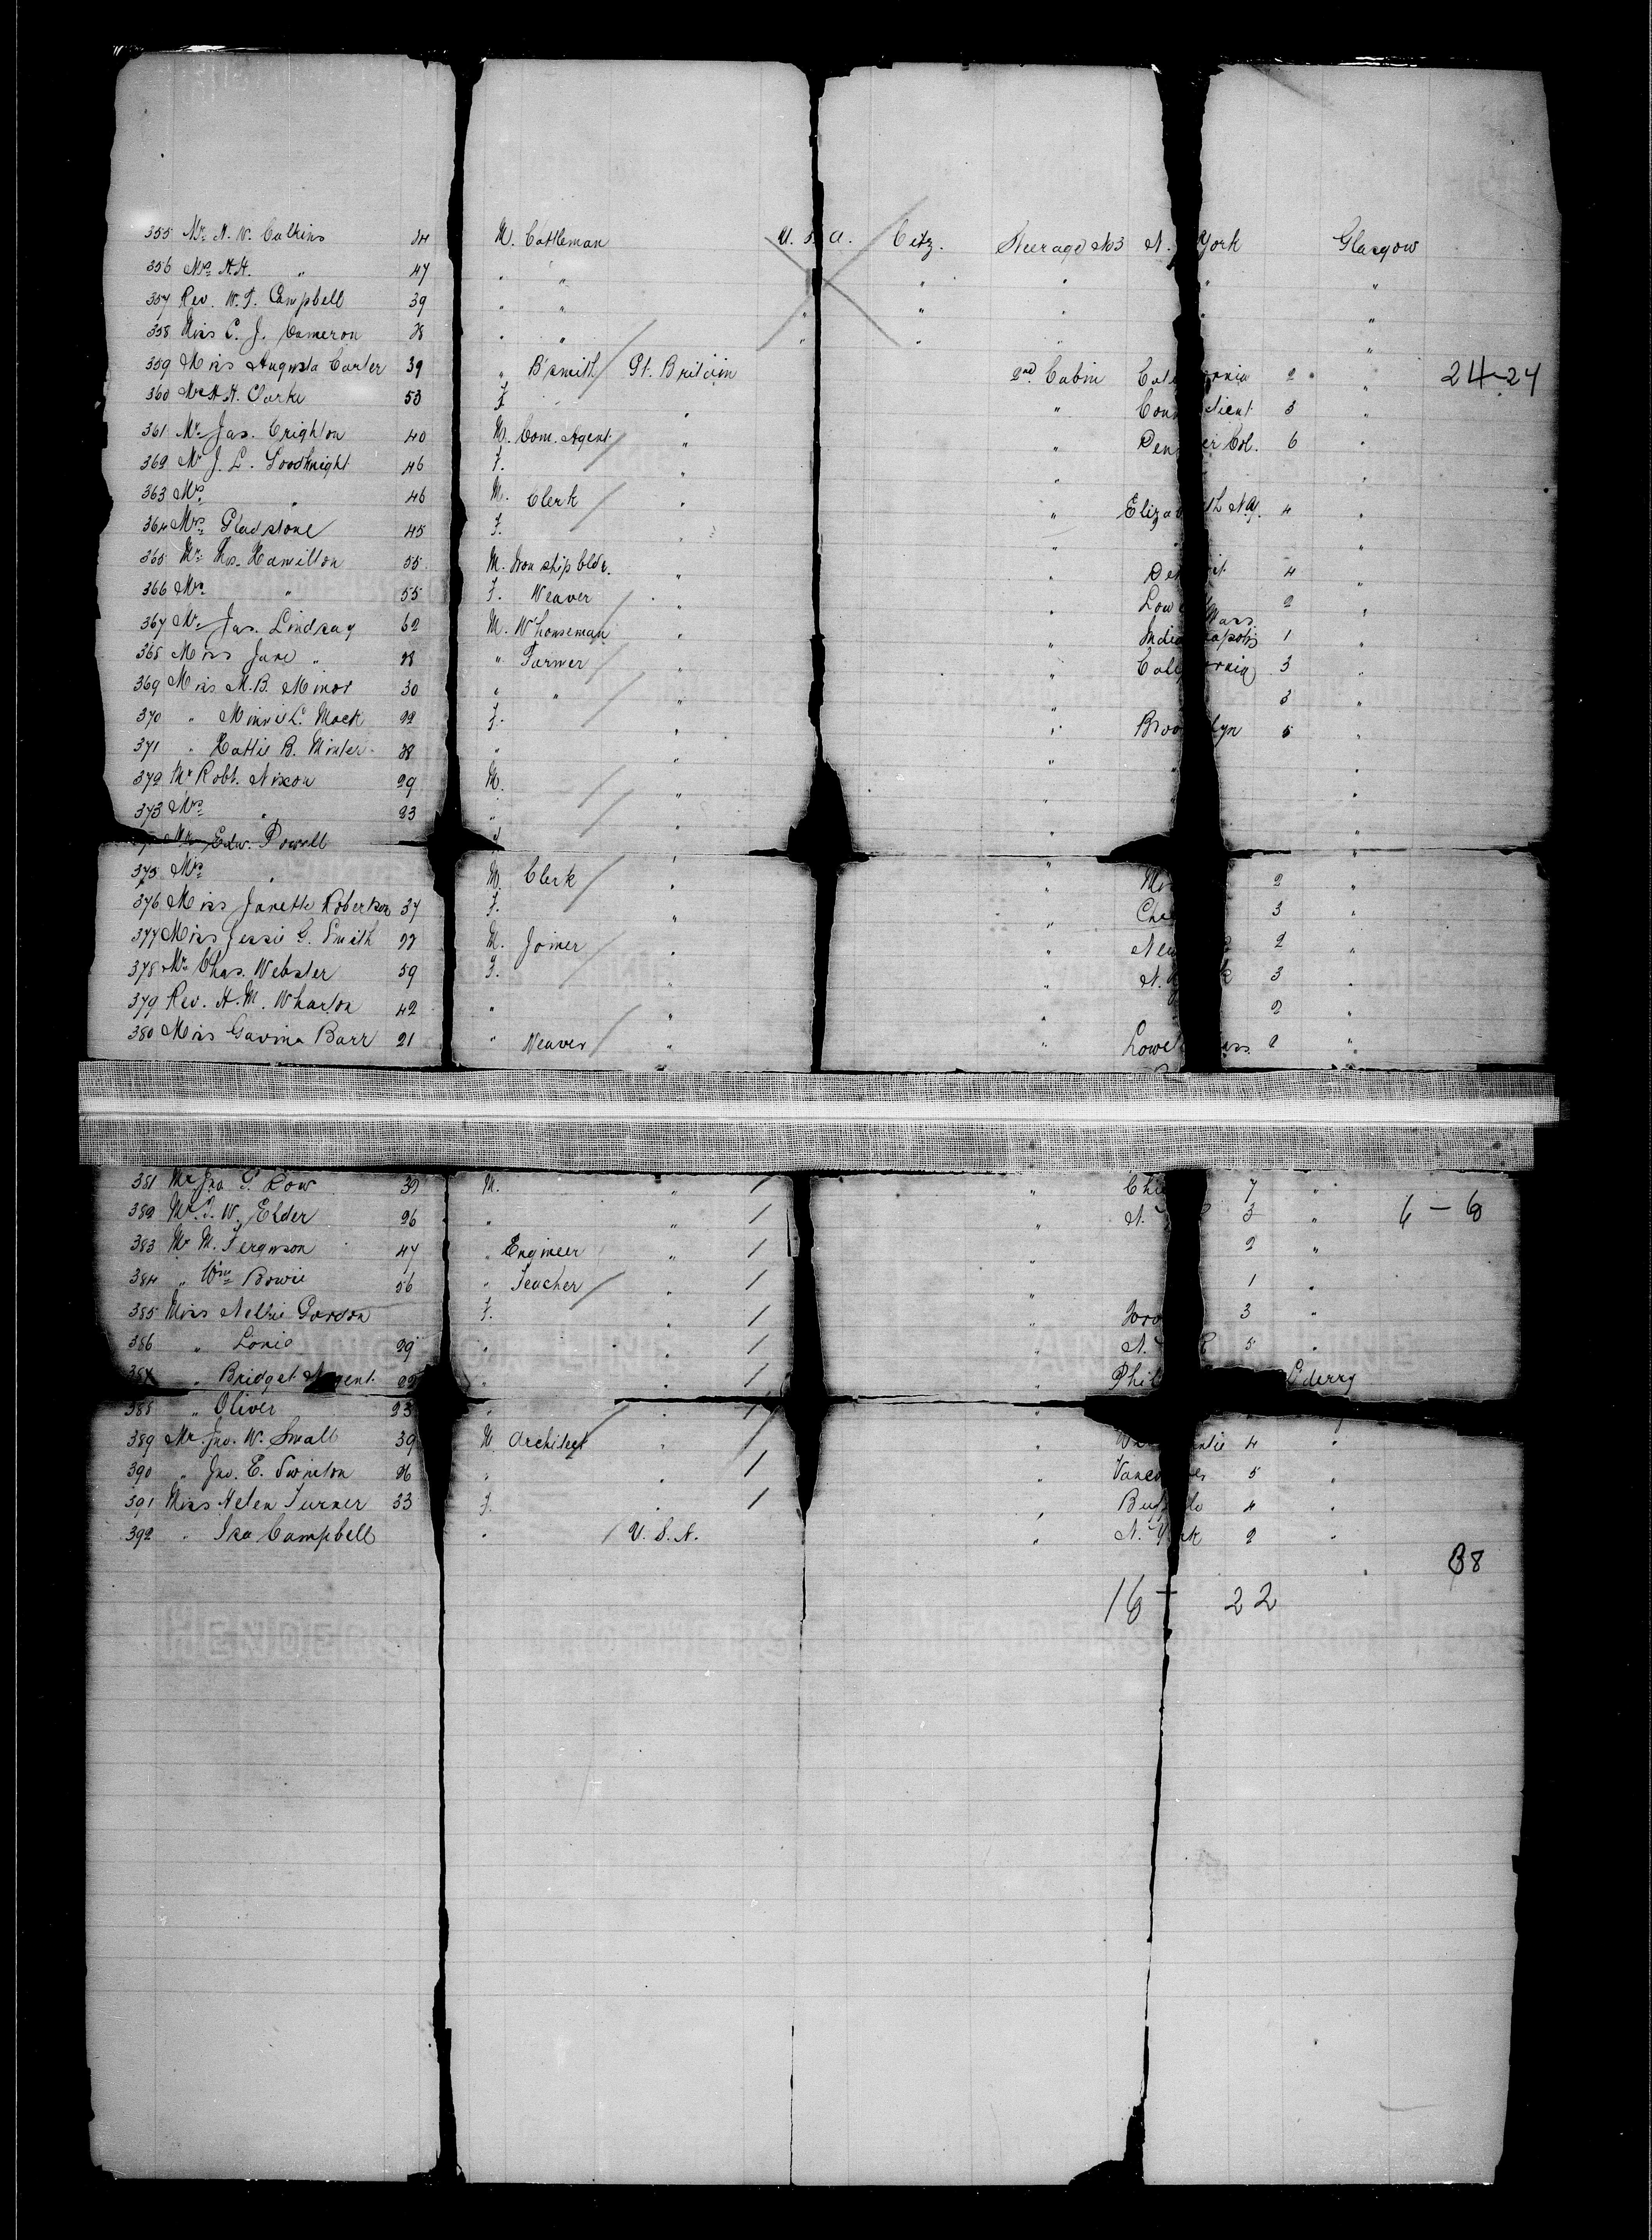 355 Mr. N. W. Calkins 24 M. Cattleman U. S. A. Citz. Steerage No 3 N. York Glasgow
356 Mrs. A. H. " 47 " " " " " "
357 Rev. W. T. Campbell 39 " " " " " " "
358 Miss C. J. Cameron 28 " " " " " "
359 Miss Augusta Carter 39 " B'smith Gt. Britain 2nd Cabin California 2 " 24-24
360 Mr. A. H. Clarke 53 F. " " Connecticut 3 "
361 Mr. Jas. Crighton 40 M. Com. Agent " " Denver Col. 6 "
362 Mr J. L. Goodknight 46 F. " " "
363 Mrs. " 46 M. Clerk " " Elizabeth N.J. 4 "
364 Mrs. Gladstone 45 F. " " "
365 Mr. Thos. Hamilton 55 M. Iron ship bldr. " " Detroit 4 "
366 Mrs. " 55 F. Weaver " " Lowell Mass 2 "
367 Mr. Jas. Lindsay 62 M. W'houseman " " Indianapolis 1 "
368 Miss Jane " 28 " Farmer " " California 3 "
369 Miss M. B. Minor 30 " " " " 3 "
370 " Minnie L. Mack 22 F. " " Brooklyn 5 "
371 " Hattie B. Minter 28 " " " " "
372 Mr Robt. Nixon 29 M. " " "
373 Mrs. " 23 " " " "
Mr. Edw. Powell
375 Mrs. " M. Clerk " " 2 "
376 Miss Janette Robertson 37 F. " " 3 "
377 Miss Jessie G. Smith 22 M. Joiner " " 2 "
378 Mr. Chas. Webster 59 F. " " N. York 3 "
379 Rev. H. M. Wharton 42 " " " 2 "
380 Miss Gavina Barr 21 " Weaver " " Lowell Mass 2 "
381 Mr Jno. G. Row 39 M. " " 7 "
382 Mr. T. W. Elder 26 " " " 3 " 6 - 6
383 Mr M. Ferguson 47 " Engineer " " 2 "
384 " Wm Bowie 56 " Teacher " 1 "
385 Miss Nellie Gordon F. " " 3 "
386 " Lonie 29 " " " 5 "
387 " Bridget Nugent 22 " " " Phil L'derry
388 " Oliver 23 " "
389 Mr. Jno. W. Small 39 M Architect " " 4 "
390 " Jno. E. Swinton 26 " " " Vancouver 5 "
391 Miss Helen Turner 33 F. " " Buffalo 4 "
392 " Isa Campbell " U. S. A. " N. York 2 "
38
16 - 22